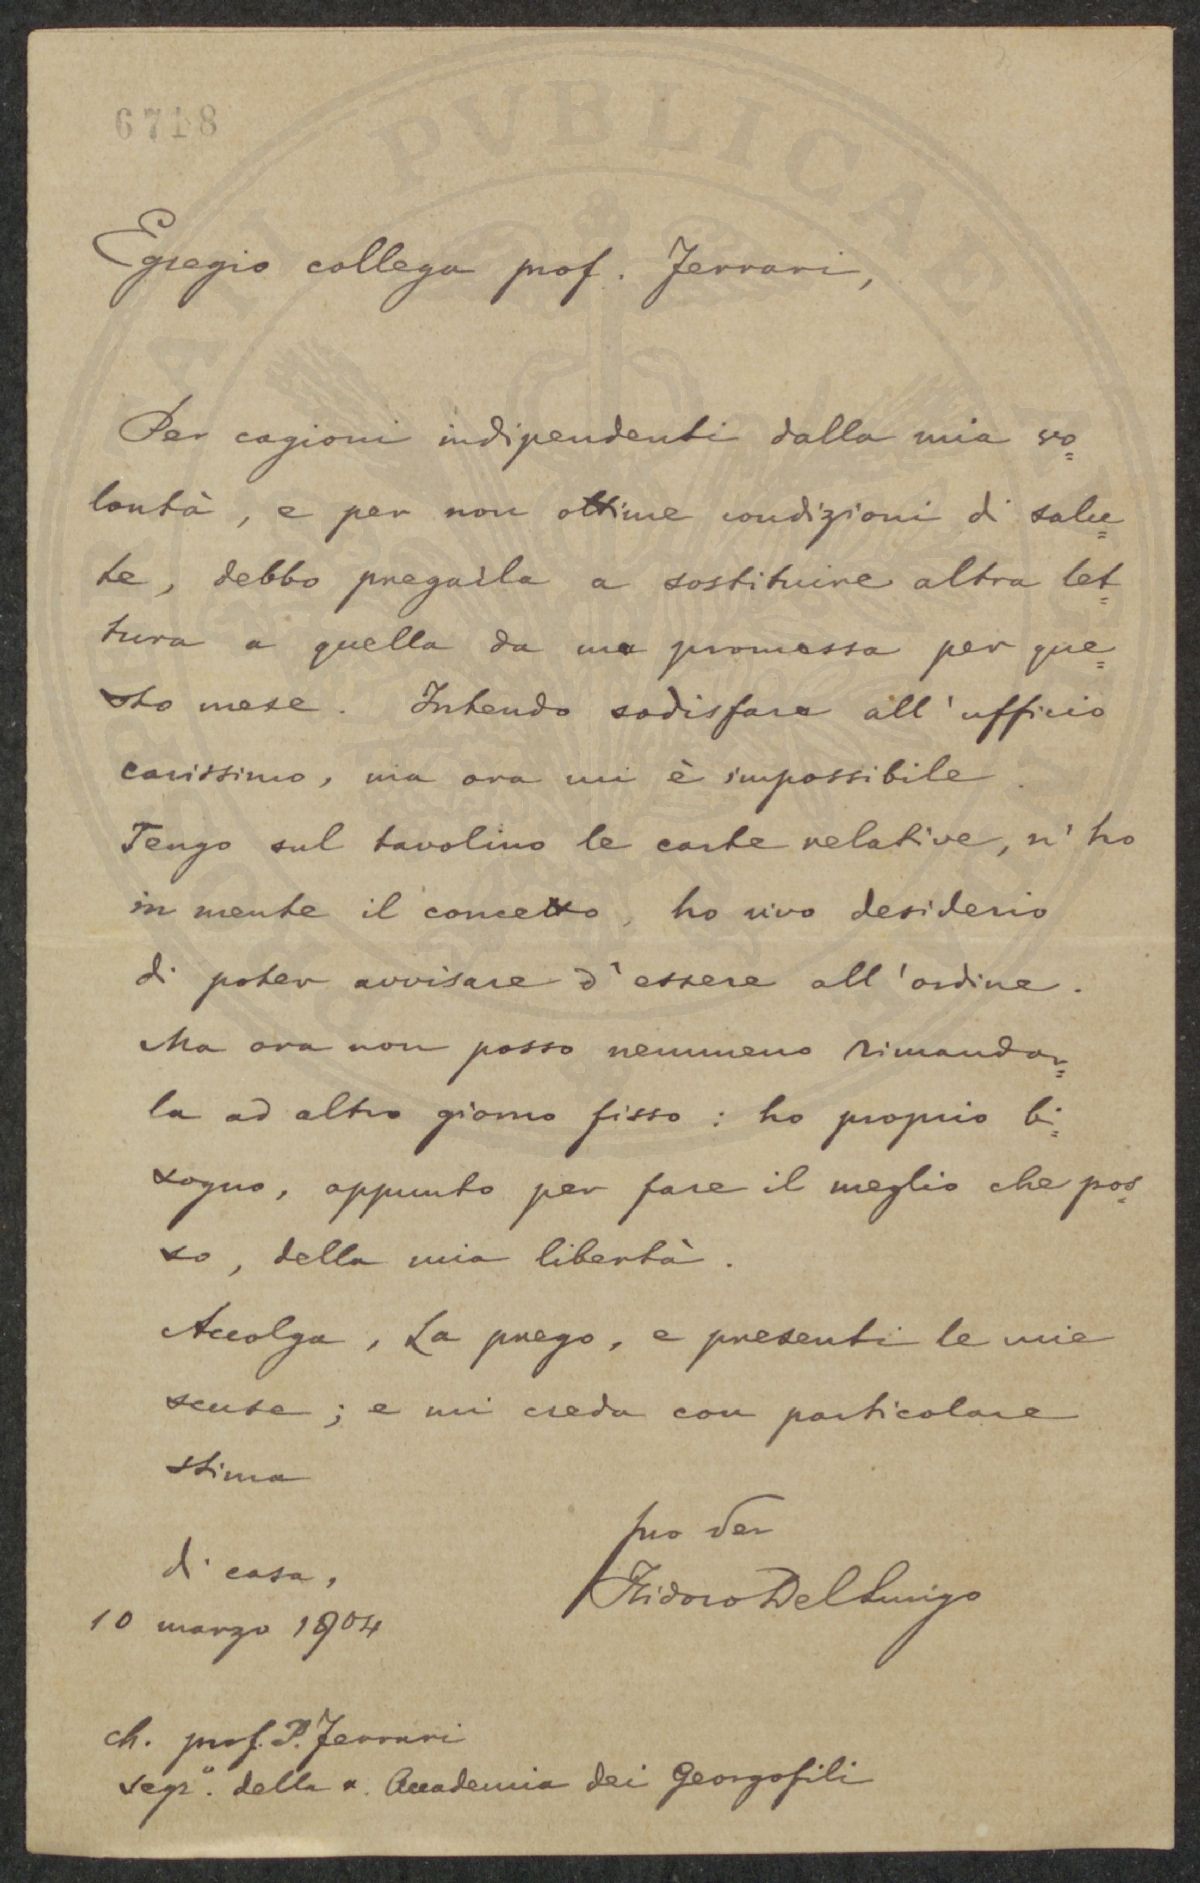 6718
Egregio collega prof. Ferrari,
Per cagioni indipendenti dalla mia vo=
lontà, e per non ottime condizioni di salu=
te, debbo pregarla a sostituire altra let=
tura a quella da me promessa per que=
sto mese. Intendo sodisfare all'ufficio
carissimo, ma ora mi è impossibile.
Tengo sul tavolino le carte relative, n'ho
in mente il concetto, ho vivo desiderio
di poter avvisare d'essere all'ordine.
Ma ora non posso nemmeno rimandar=
la ad altro giorno fisso: ho proprio bi=
sogno, appunto per fare il meglio che pos=
so, della mia libertà.
Accolga, La prego, e presenti le mie
scuse; e mi creda con particolare
stima
suo dev
Isidoro Del Lungo
di casa,
10 marzo 1904
ch. prof. P. Ferrari
segr.º della r. Accademia dei Georgofili